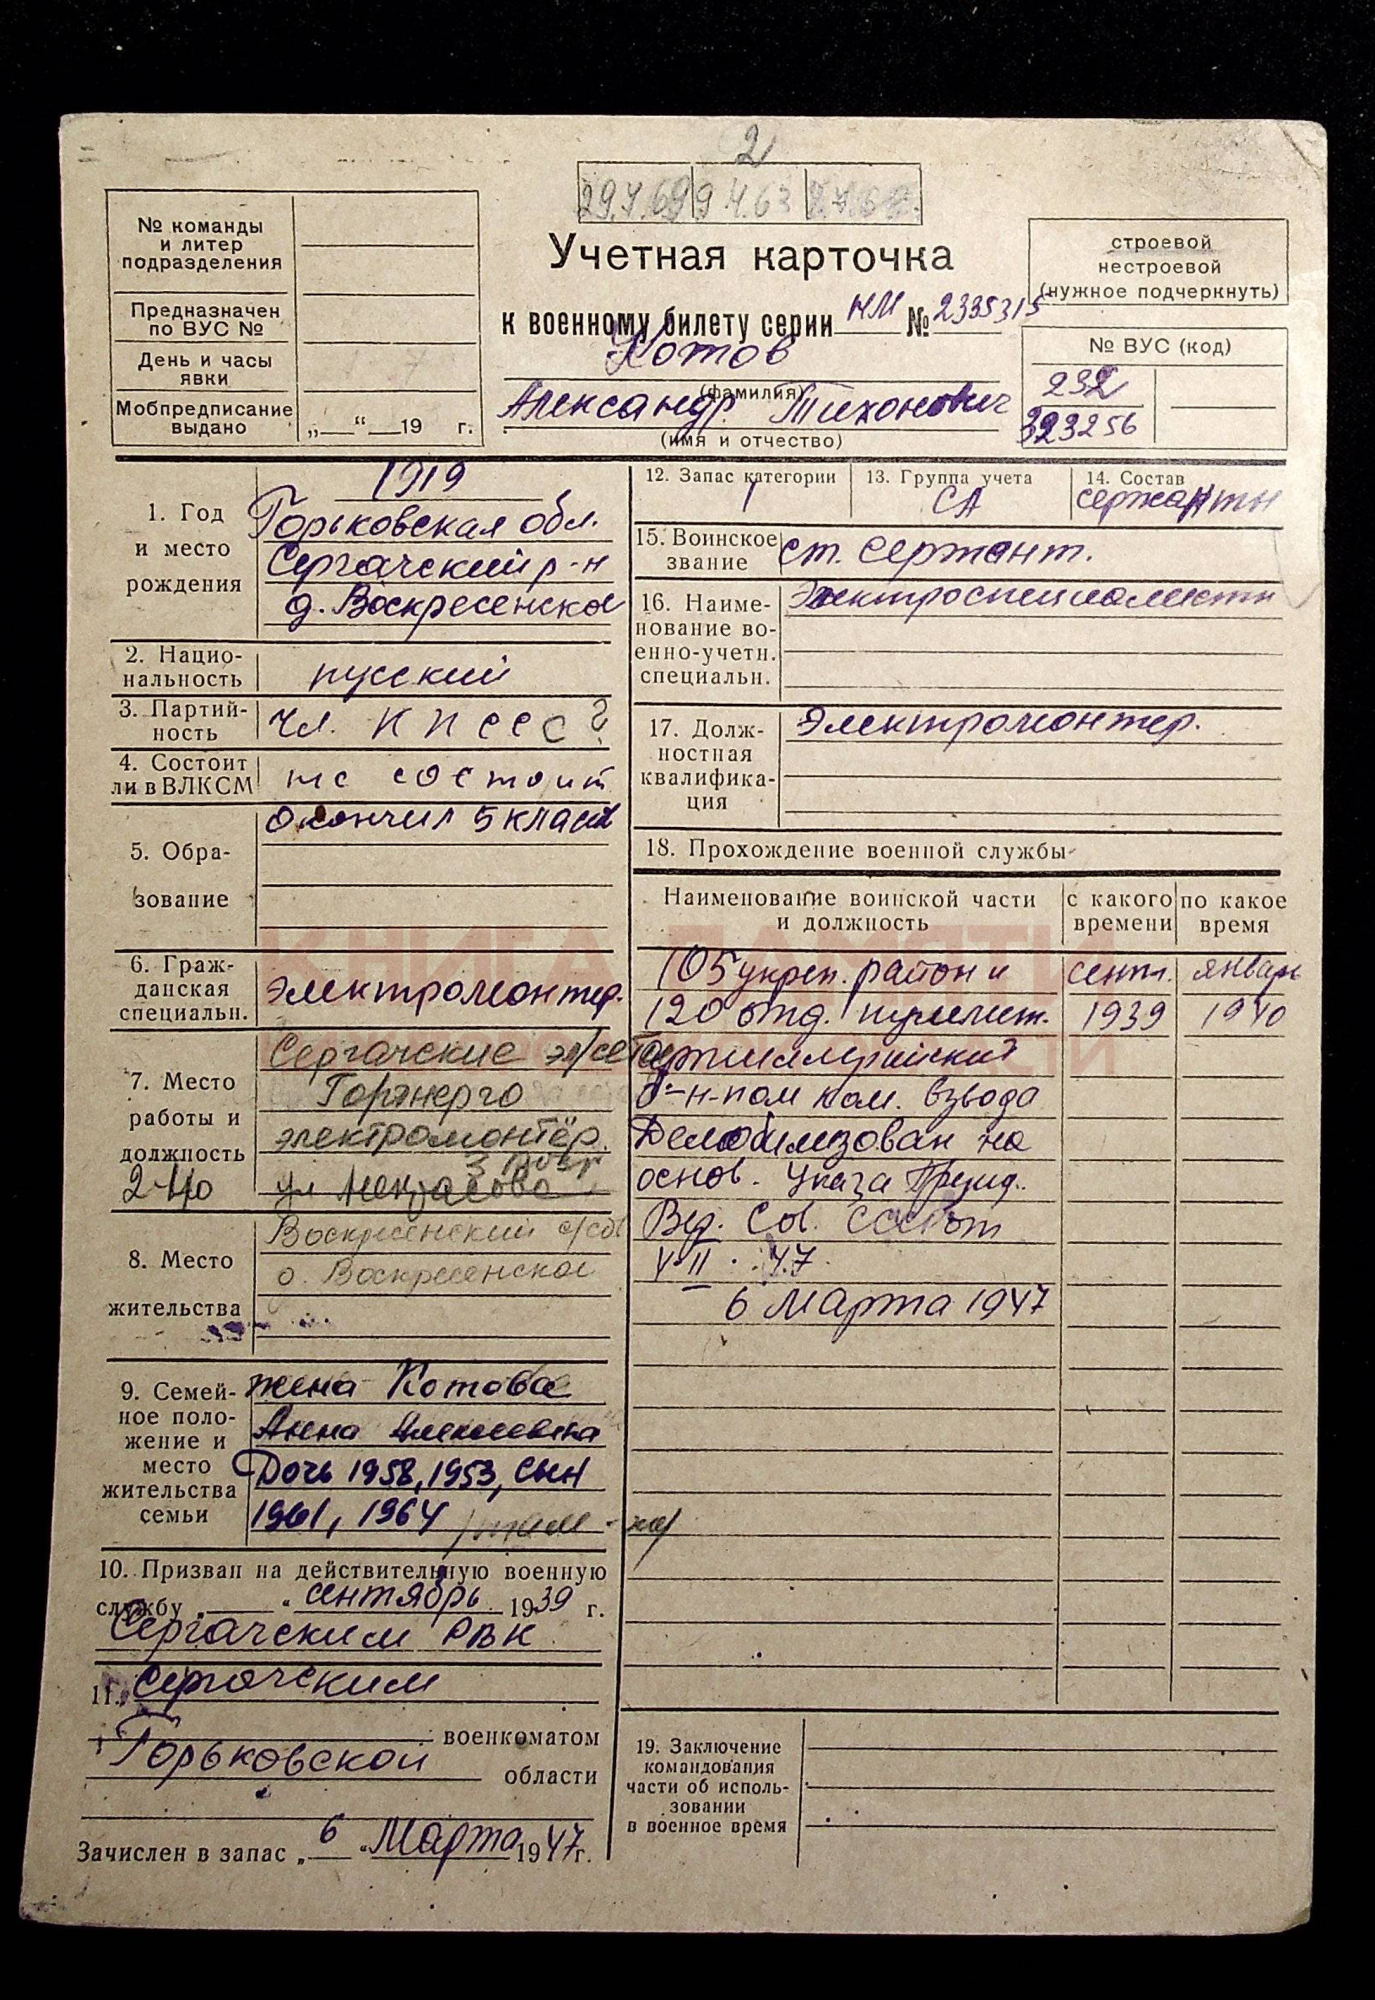 2
29.4.69 9.4.63
№ команды
и литер
подразделения
Предназначен
по ВУС №
День и часы
явки
Мобпредписание
выдано
„ “ 19 г.
Учетная карточка
к военному билету серии НМ № 2335315
Котов
(фамилия)
Александр Тихонович
(имя и отчество)
строевой
нестроевой
(нужное подчеркнуть)
№ ВУС (код)
232
323256
1. Год
и место
рождения
1919
Горьковская обл.
Сергачский р-н
д. Воскресенское
2. Нацио-
нальность
русский
3. Партий-
ность
чл. КПССС ?
4. Состоит
ли в ВЛКСМ
не состоит
5. Обра-
зование
окончил 5 классов
6. Граж-
данская
специальн.
электромонтер.
7. Место
работы и
должность
2-40
Сергачские эл/сети
Горэнерго
электромонтёр
ул Некрасова
8. Место
жительства
Воскресенский с/сов
Воскресенское
9. Семей-
ное поло-
жение и
место
жительства
семьи
жена Котова
Анна Алексеевна
Дочь 1958, 1953, сын
1961, 1964
10. Призван на действительную военную
службу „ “ сентябрь 1939 г.
Сергачским РВК
11. Сергачским
военкоматом
Горьковской
области
Зачислен в запас „ 6 “ Марта 1947 г.
12. Запас категории
1
13. Группа учета
СА
14. Состав
сержанты
15. Воинское
звание
ст. сержант.
16. Наиме-
нование во-
енно-учетн.
специальн.
Электроспециалисты
17. Долж-
ностная
квалифика-
ция
Электромонтер.
18. Прохождение военной службы
Наименование воинской части
и должность
с какого
времени
по какое
время
105 укреп. район и сент. январь
120 отд. пулемет. 1939 1940
артиллерийский
б-н-пом ком. взвода
Демобилизован на
основ. Указа Презид.
Вер. Сов. СССР от
6 Марта 1947
19. Заключение
командования
части об исполь-
зовании
в военное время
КНИГА ПАМЯТИ